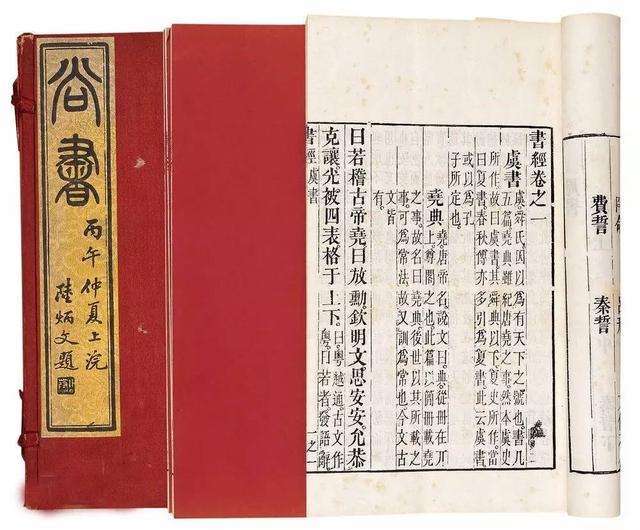 尚書
丙午仲夏上浣
陸炳文題
費誓
秦誓
書經卷之一
虞書 虞舜氏因以為有天下之號也書凡
五篇堯典雖紀唐堯之事然本虞史
所作故曰虞書其舜典以下夏史所作當
曰夏書春秋傳亦多引為夏書此云虞書
或以為孔
子所定也
堯典 堯唐帝名說文曰典從冊在丌
上尊閣之也此篇以簡冊載堯
之事故名曰堯典後世以其所載之
事可為常法故又訓為常也今文古
文皆
有
曰若稽古帝堯曰放勳欽明文思安安允恭
克讓光被四表格于上下 曰粵越通古文作
粵曰若者發語辭
書經虞書 之一